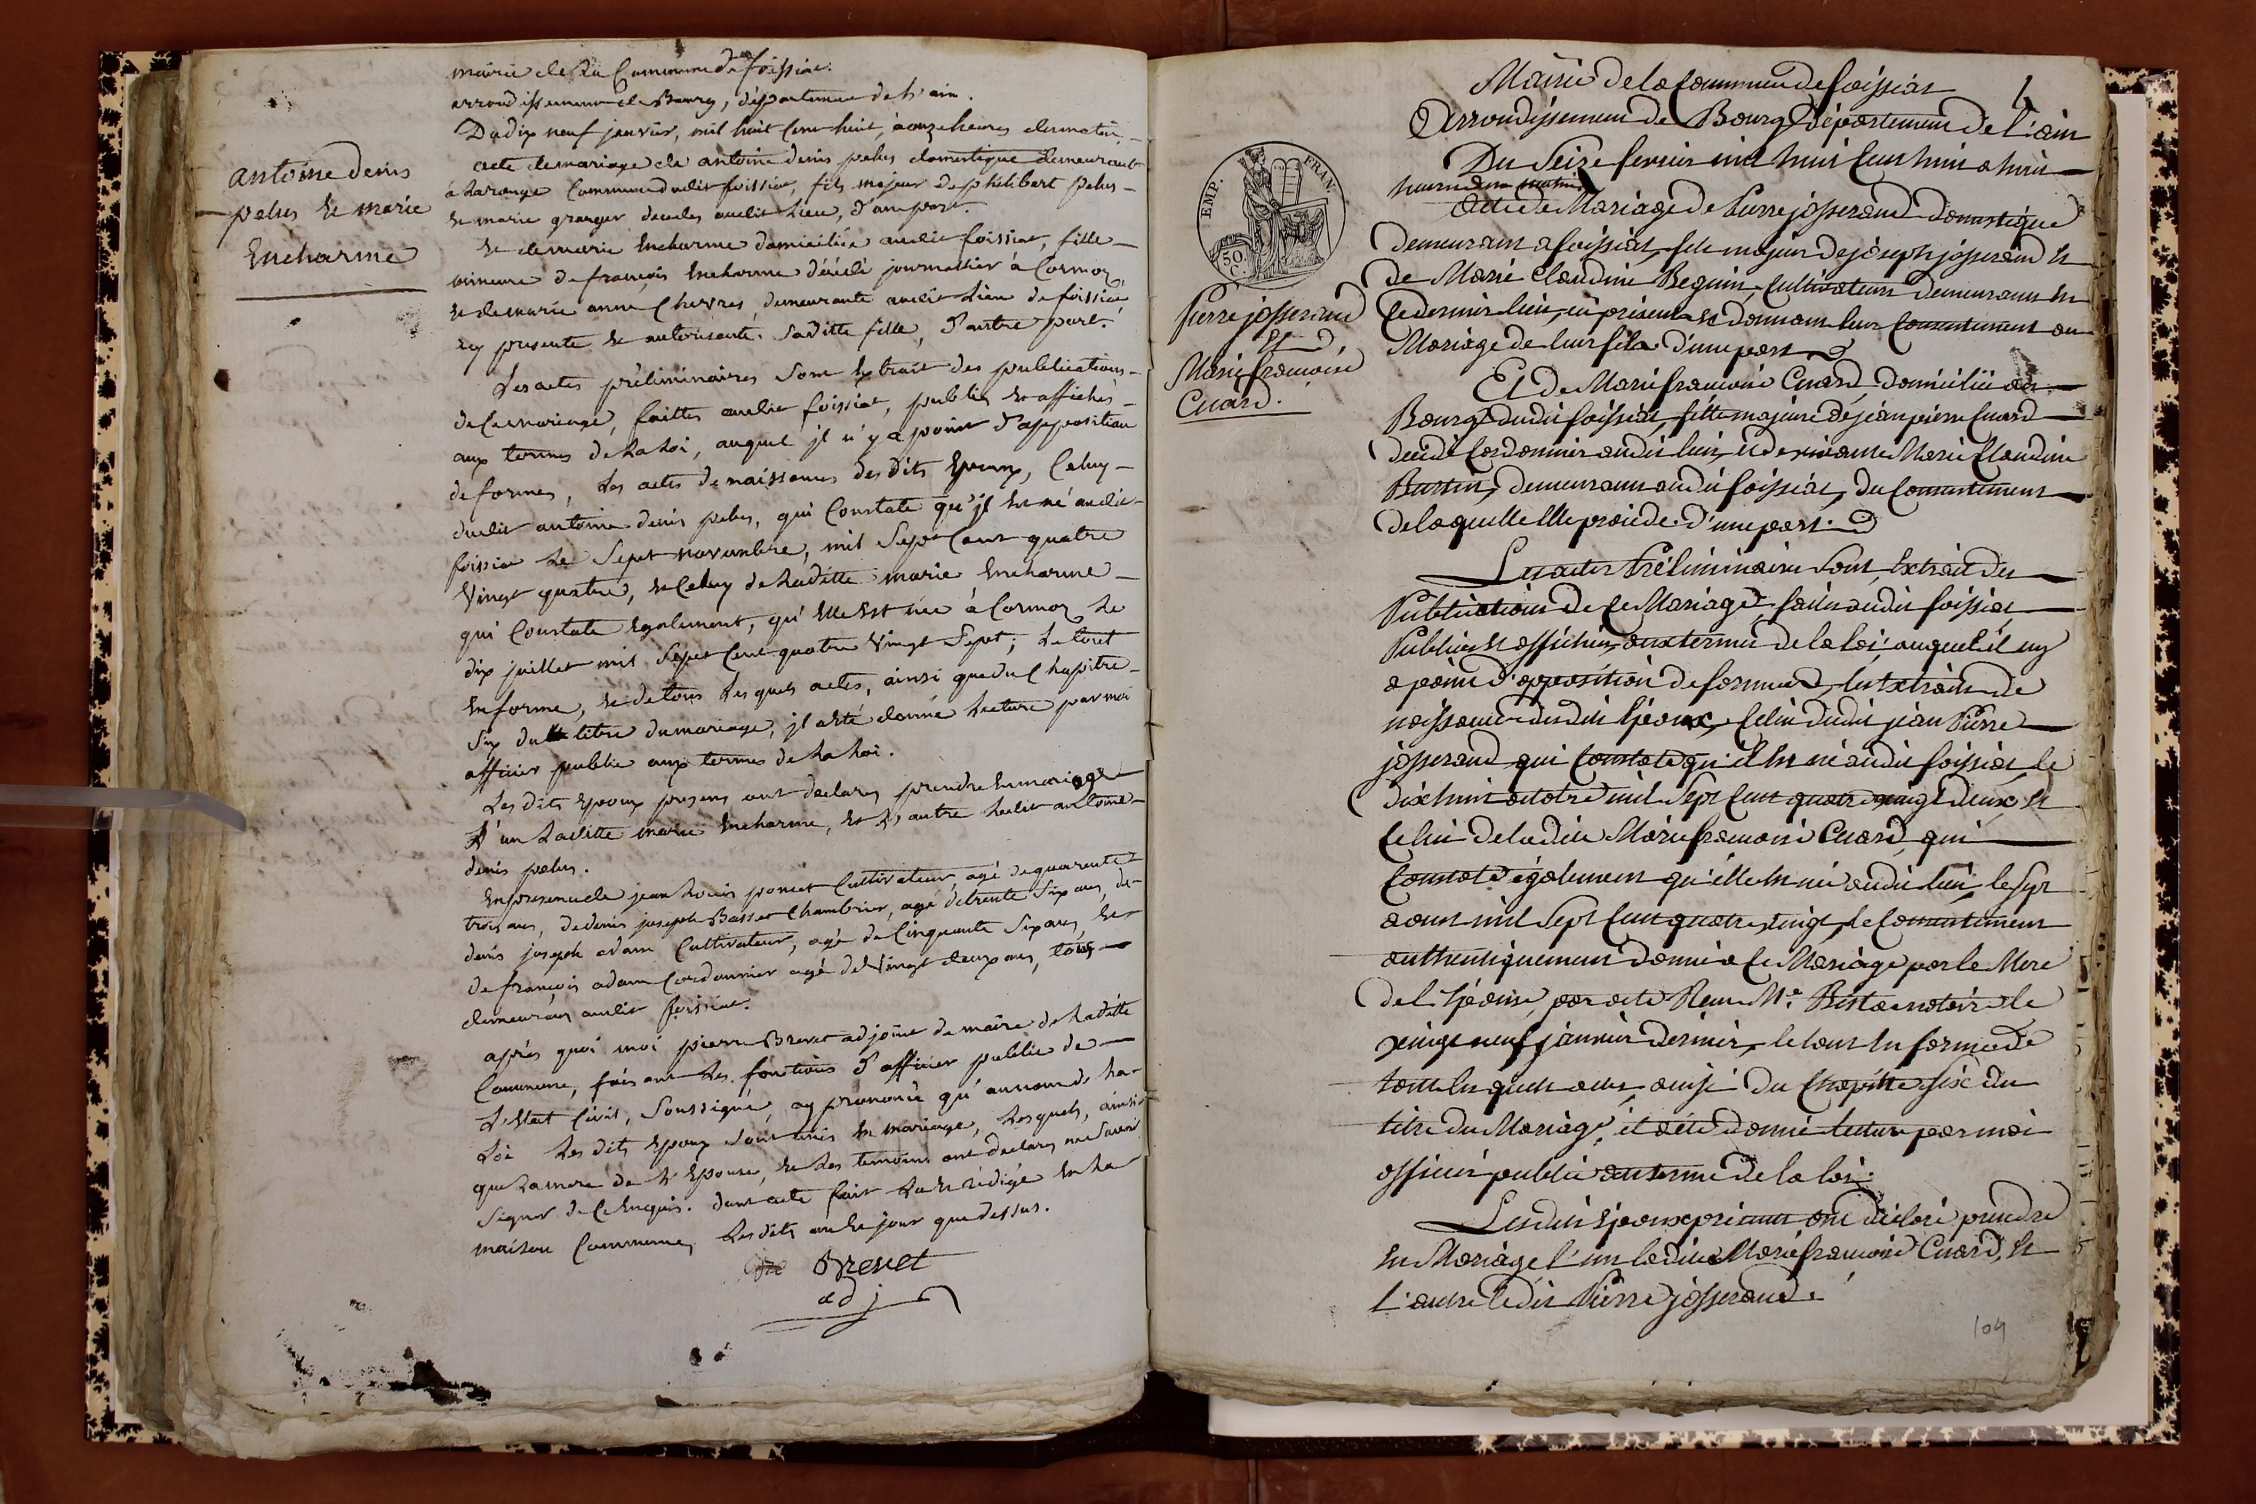 mairie de la Commune de foissiat.
arrondissement de Bourg, département de l'ain.
Du dix neuf janvier, mil huit cent huit, à onze heures du matin,
acte de mariage de antoine denis pelus domestique demeurant
à Commune dudit foissiat, fils majeur de philibert pelus
et marie granger decedes audit lieu, d'une part.
et de marie Encharme domiciliée audit foissiat, fille
mineure de françois Encharme décédé journallier à Cormoz
et de marie anne Chevres, demeurante audit lieu de foissiat
icy presente et autorisante saditte fille, d'autre part.
antoine denis
pelus et marie
Encharme
Les actes préliminaires sont Extrait des publications
de Ce mariage, faittes audit foissiat, publiés et affichés
aux termes de la Loi, auquel jl n'y a point d'apposition
de formée, Les actes de naissances des dits Epoux, Celuy
dudit antoine denis pelus, qui Constate qu'jl Est né audit
foissiat le Sept novembre, mil Sept Cent quatre
Vingt quatre, et Celuy de Laditte marie Encharme
qui Constate Egalement, qu'Elle Est née à Cormoz Le
dix juillet mil Sept Cent quatre Vingt Sept; Le tout
En forme, et de tous Les quels actes, ainsi que du Chapitre
Six du titre du mariage, jl a Eté donné Lecture par moi
officier public aux termes de La Loi.
Les dits Epoux presens ont declarez prendre En mariage
L'un Laditte marie Encharme, et L'autre Ledit antoine
denis pelus.
En presence de jean Louis poncet Cultivateur agé de quarente
trois ans, de denis joseph Basset Chambrier, agé de trente Six ans, de
denis joseph adam Cultivateur, agé de Cinquante Six ans, et
de françois adam Cordonnier agé de Vingt deux ans, tous
demeurans audit foissiat.
après quoi moi pierre Brevet adjoint de maire de Laditte
Commune, faisant Les fonctions d'officier public de
L'Etat Civil, Soussigné, ay prononcé qu'au nom de La
Loi Les dits Epoux sont unis En mariage, Lesquels, ainsi
que La mere de L'Epouse, et Les temoins ont declarez ne Savoir
Signer de Ce Enquis. dont acte fait Lu et rédigé En La
maison Commune, Lesdits an et jour que dessus.
Brevet
adj
Mairie de la Commune de foissiat
Arrondissement de Bourg Département de l'ain
Du Seize fevrier mil huit Cent huit a huit
heures du matin
Acte de Mariage de Pierre josserand Domestique
demeurant a foissiat, fils majeur de joseph josserand et
de Marie Claudine Beguin, Cultivateurs Demeurans En
Ce dernier lieu, ici présents et donnant leur Consentement au
Mariage de leur fils d'une part
EMP. FRAN.
50 C.
Pierre josserand
Et
Marie francoise
Cuard.
Et De Marie francoise Cuard, Domiciliée au
Bourg dudit foissiat, fille majeure de jean pierre Cuard
decedé Cordonnier audit lieu, et de vivante Marie Claudine
Burtin, demeurante audit foissiat, du Consentement
de laquelle Elle procède. d'une part.
Les actes Préliminaires Sont Extrait des
Publications de Ce Mariage, faites audit foissiat
Publiées et affichées aux termes de la loi auquel il ny
a point d'opposition de formée, les Extraits de
naissance desdits Epoux, Celui dudit jean Pierre
josserand qui Constate qu'il Est né audit foissiat, le
dixhuit octobre mil Sept Cent quatre vingt deux, et
Celui de ladite Marie francoise Cuard, qui
Constate également qu'elle Est née audit lieu, le Sept
aout mil Sept Cent quatre vingt, le Consentement
authentiquement donné a Ce Mariage par la Mere
de l'Epouse, par acte Recu Me. notaire le
vingt neuf janvier dernier, le tout En forme de
tous les quels actes, ainsi du Chapitre Six du
titre du Mariage, il a été donné lecture par moi
officier public au terme de la loi.
Lesdits Epoux présents ont déclaré prendre
En Mariage l'un ladite Marie francoise Cuard, et
l'autre ledit Pierre josserand.
104